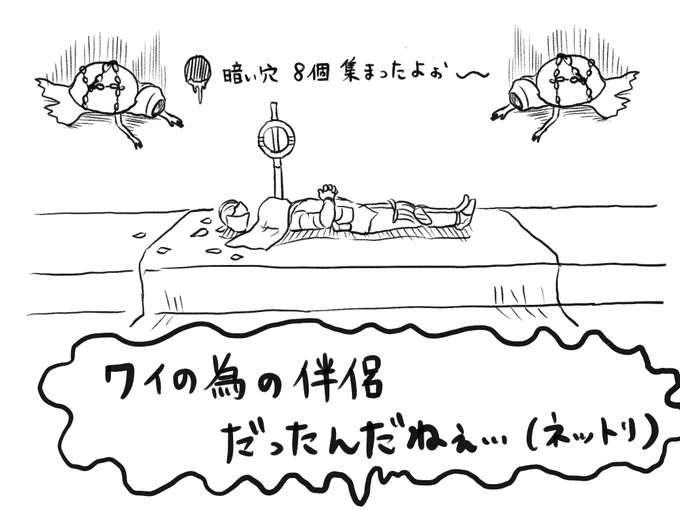 暗い穴 8個 集まったよぉ〜
ワイの為の伴侶
だったんだねぇ…(ネットリ)